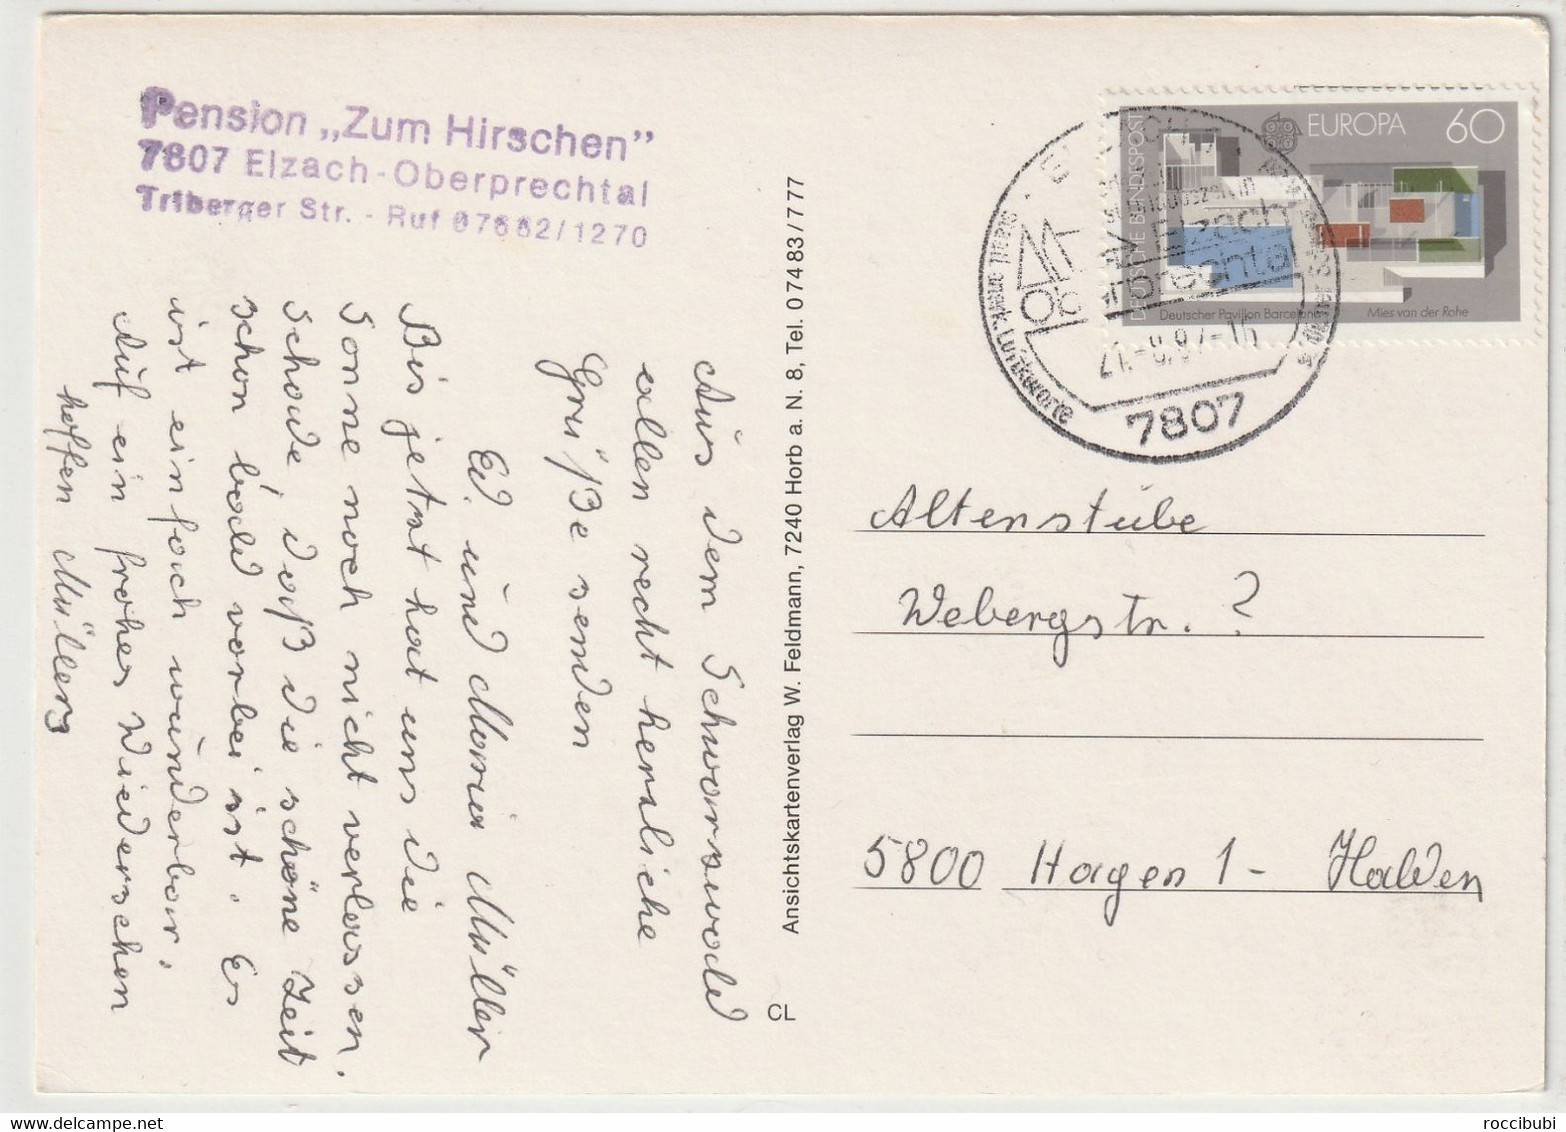 Pension „Zum Hirschen”
7807 Elzach-Oberprechtal
Triberger Str. - Ruf 07682/1270
Aus dem Schwarzwald
allen recht herzliche
Grüße senden
Ed. und Maria Müller
Bis jetzt hat uns die
Sonne noch nicht verlassen.
Schade, daß die schöne Zeit
schon bald vorbei ist. Es
ist einfach wunderbar.
Auf ein frohes Wiedersehen
hoffen Müllers
Ansichtskartenverlag W. Feldmann, 7240 Horb a. N. 8, Tel. 07483/777
CL
DEUTSCHE BUNDESPOST
EUROPA 60
Deutscher Pavillon Barcelona
Mies van der Rohe
Elzach
Oberprechtal
Staatl. anerk. Luftkurorte
21.-8.87-16
7807
Altenstube
Webergstr. ?
5800 Hagen 1 - Halden
roccibubi